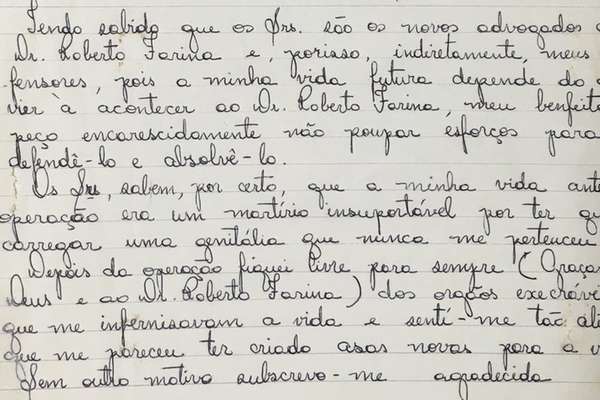 Tendo sabido que os Srs. são os novos advogados d
Dr. Roberto Farina e, porisso, indiretamente, meus
fensores, pois a minha vida futura depende do
vier à acontecer ao Dr. Roberto Farina, meu benfeito
peço encarescidamente não poupar esforços para
defendê-lo e absolvê-lo.
Os Srs, sabem, por certo, que a minha vida ante
operação era um martírio insuportável por ter qu
carregar uma genitália que nunca me pertenceu
Depois da operação fiquei livre para sempre (Graças
Deus e ao Dr. Roberto Farina) dos orgãos execráve
que me infernisavam a vida e sentí-me tão ali
que me pareceu ter criado asas novas para a v
Sem outro motivo subscrevo-me agradecida